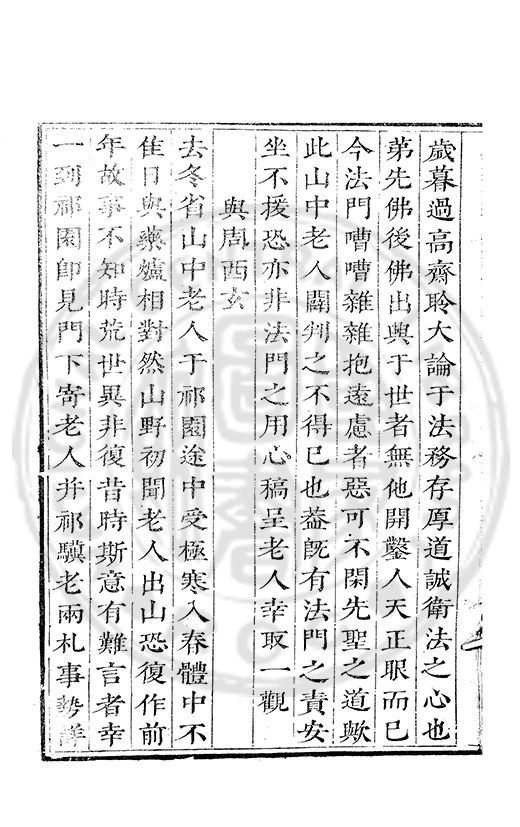 歲暮過高齋聆大論于法務存厚道誠衛法之心也
弟先佛後佛出興于世者無他開鑿人天正眼而已
今法門嘈嘈雜雜抱遠慮者惡可不閑先聖之道歟
此山中老人闢判之不得已也葢旣有法門之責安
坐不援恐亦非法門之用心稿呈老人幸取一觀
與周西玄
去冬省山中老人于祁園途中受極寒入春體中不
佳日與藥爐相對然山野初聞老人出山恐復作前
年故事不知時荒世異非復昔時斯意有難言者幸
一到祁園卽見門下寄老人并祁驥老兩札事勢詳